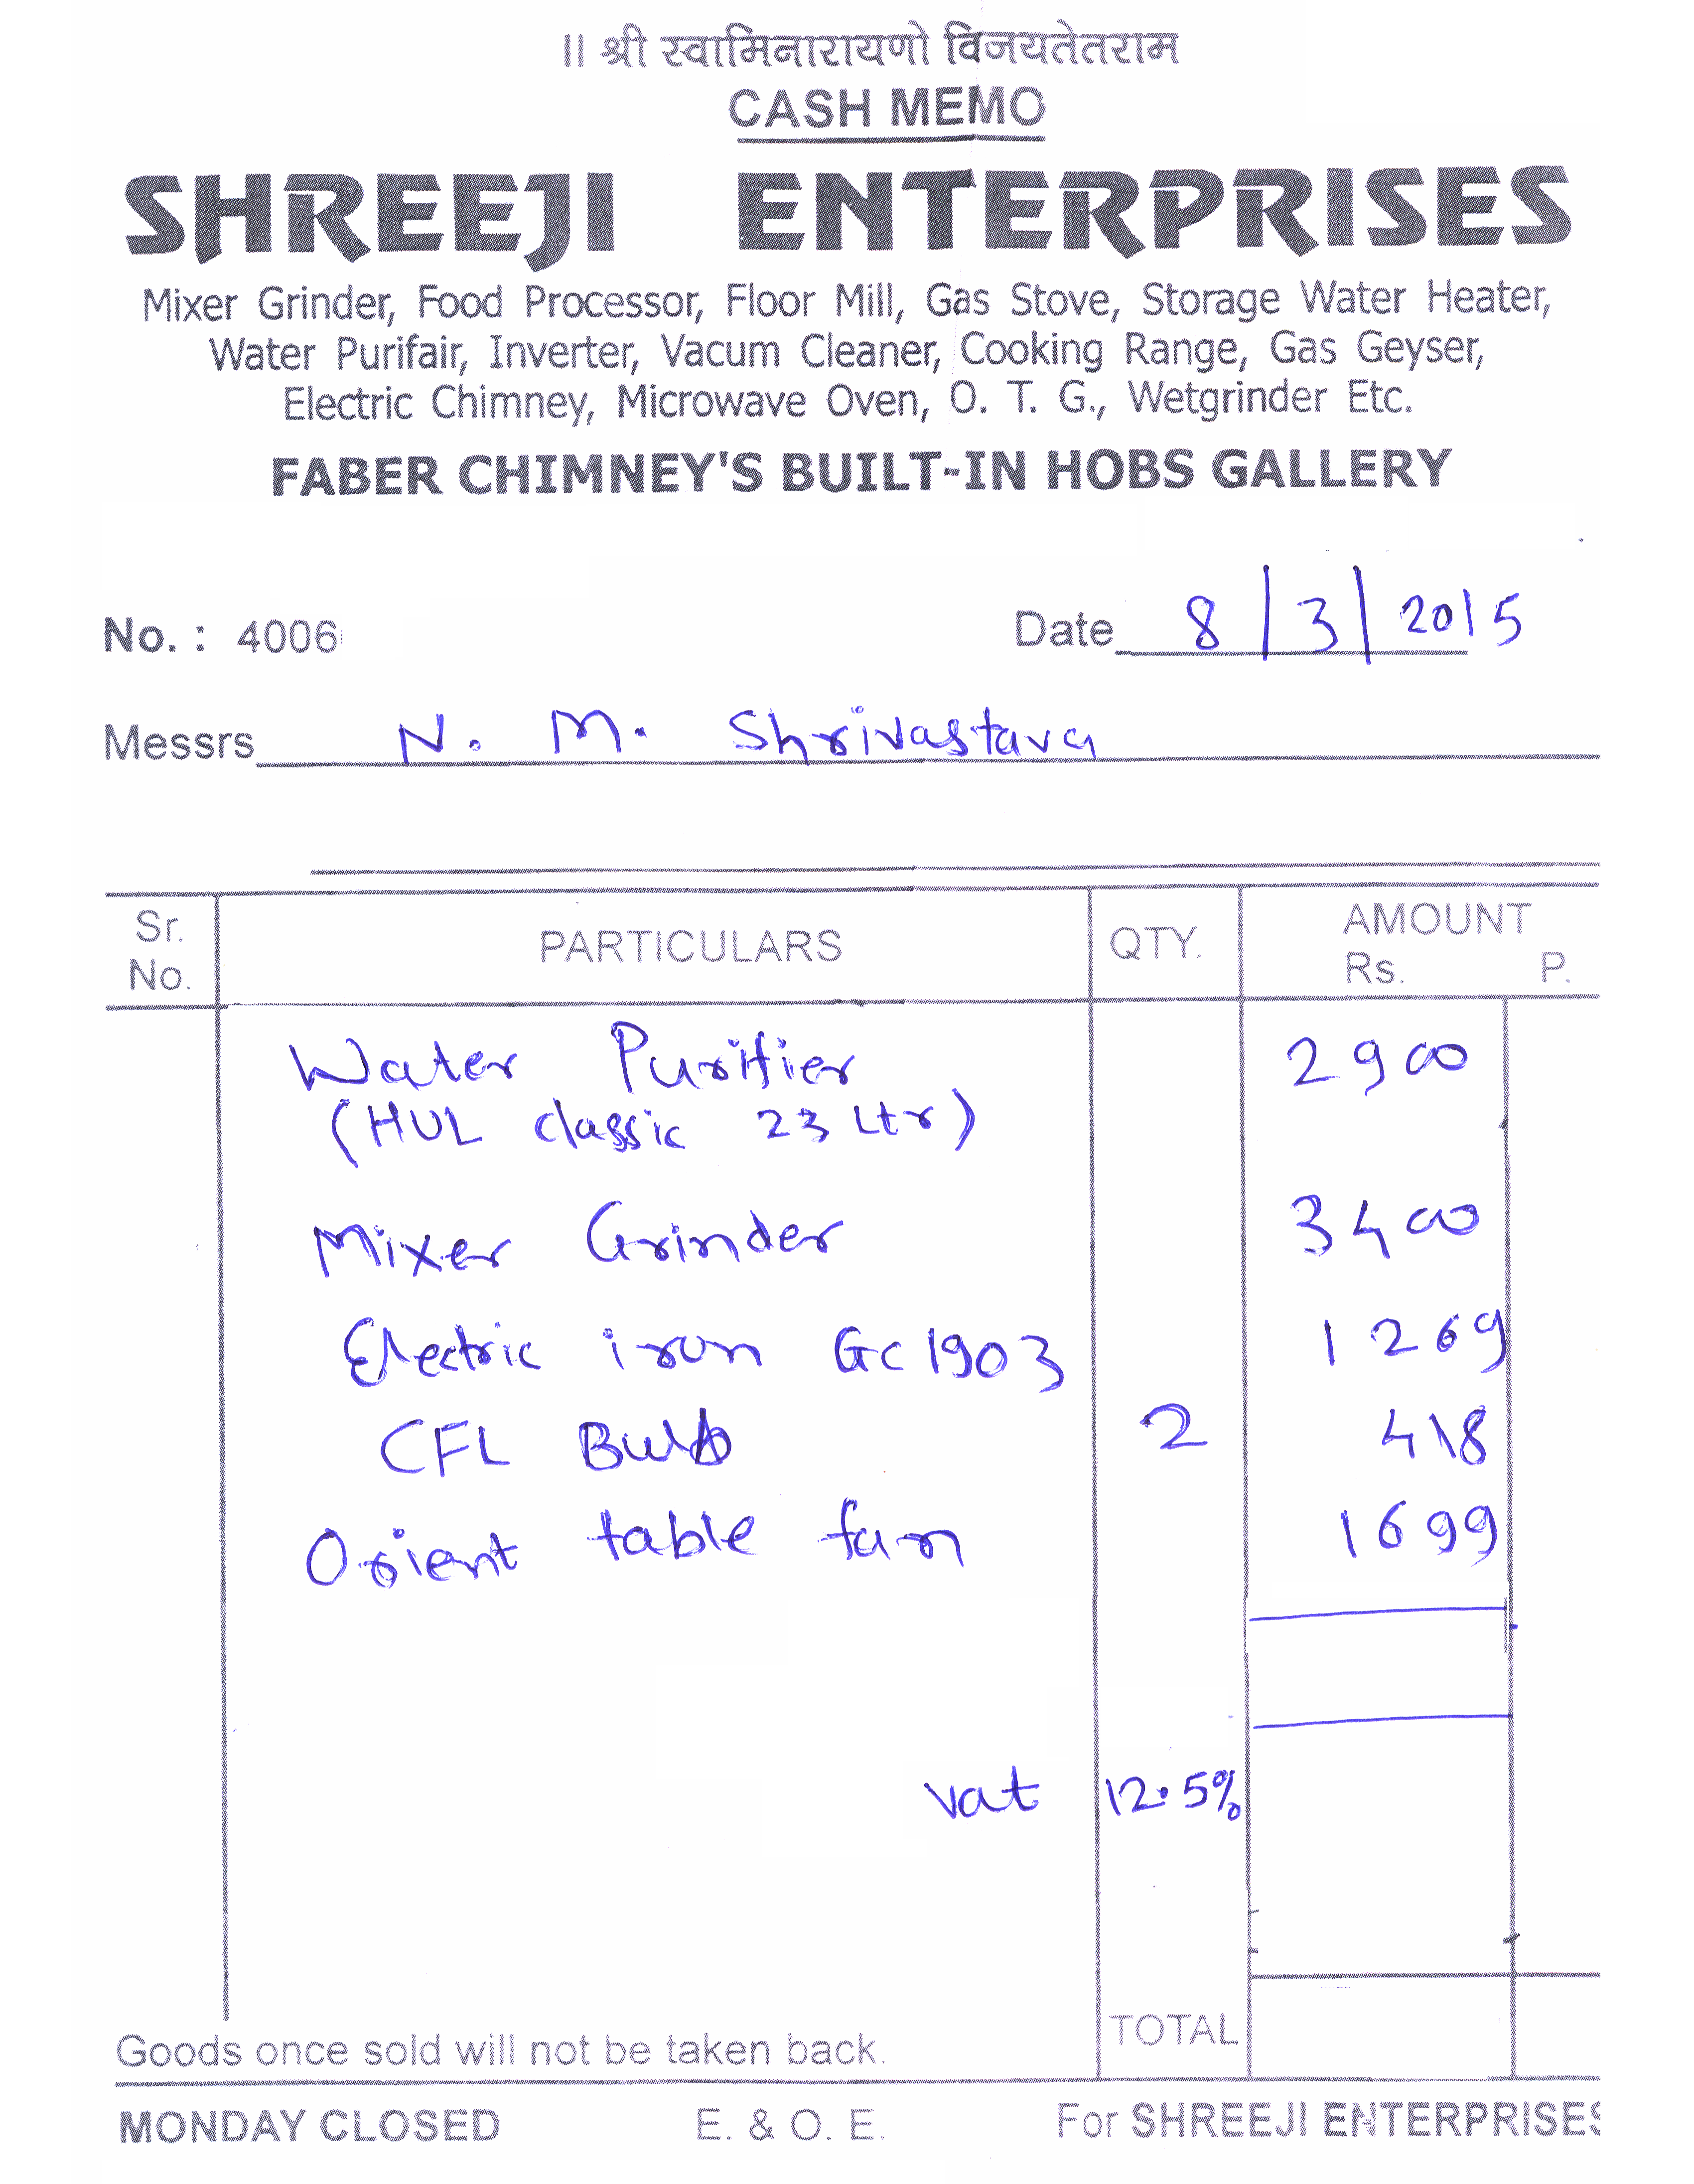 ॥ श्री स्वामिनारायणो विजयतेतराम
CASH MEMO
SHREEJI ENTERPRISES
Mixer Grinder, Food Processor, Floor Mill, Gas Stove, Storage Water Heater,
Water Purifair, Inverter, Vacum Cleaner, Cooking Range, Gas Geyser,
Electric Chimney, Microwave Oven, O. T. G., Wetgrinder Etc.
FABER CHIMNEY'S BUILT-IN HOBS GALLERY
No. : 4006 Date 8/3/2015
Messrs N. M. Shrivastava
Sr. No. PARTICULARS QTY. AMOUNT Rs. P.
Water Purifier 2900
(HUL classic 23 Ltr)
Mixer Grinder 3400
Electric iron GC1903 1269
CFL Bulb 2 418
Orient table fan 1699
vat 12.5%
TOTAL
Goods once sold will not be taken back.
MONDAY CLOSED E. & O. E. For SHREEJI ENTERPRISES